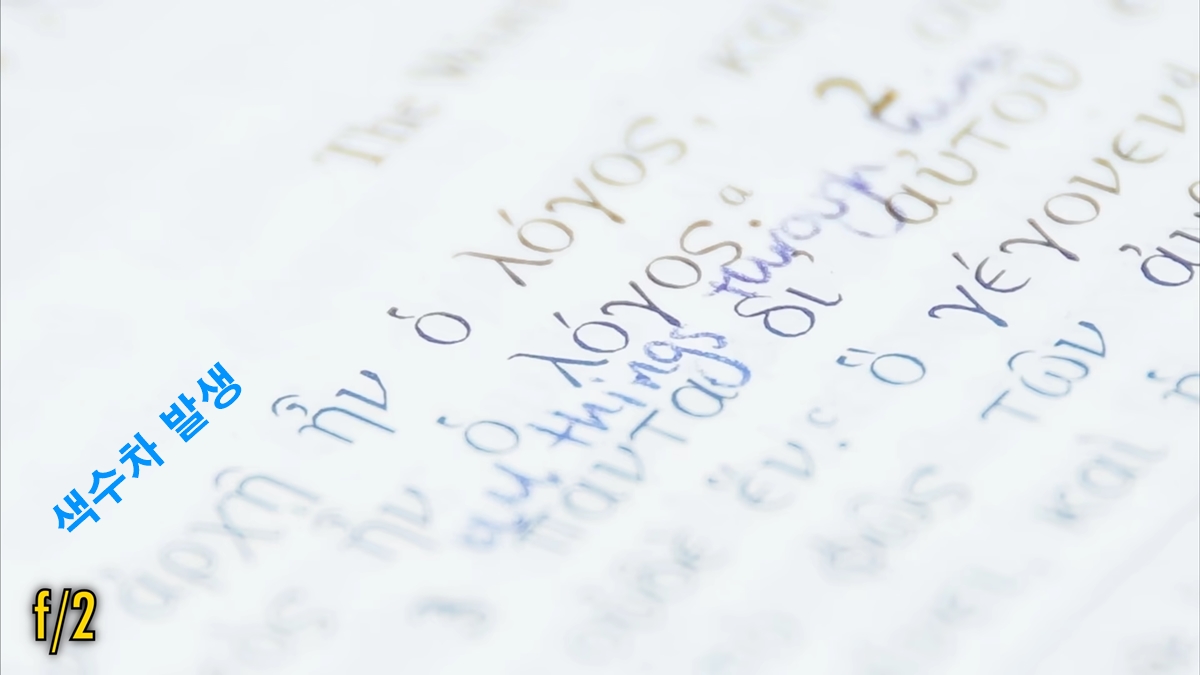 The
ἀρχῇ ἦν ὁ λόγος, καὶ
ἦν ὁ λόγος.a 2
all things through him
πάντα δι' αὐτοῦ
οὐδὲ ἕν.c ὃ γέγονεν d
φῶς τῶν
καὶ
색수차 발생
f/2